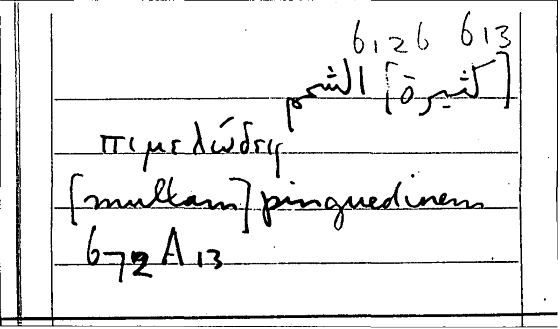 6126 613
[كثيرة] الشحم
πιμελώδεις
[multam] pinguedinem
672 A 13